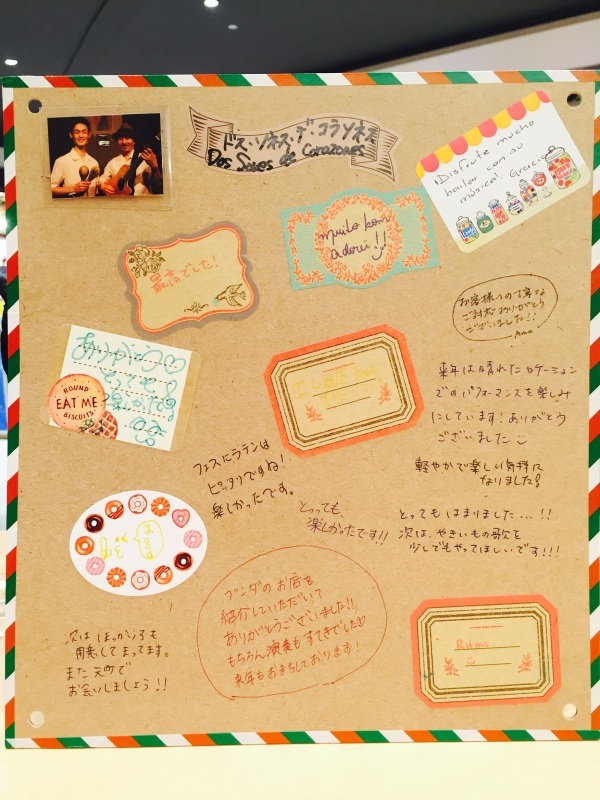 ドス・ソネス・デ・コラソネス
Dos Sones de Corazones
¡Disfrute mucho
bailar con su
música! Gracias
muito bom
adorei!!
最高でした!
お客様への丁寧な
ご対応ありがとう
ございました!!
ありがとう♡
とっても
楽しかった
ROUND
EAT ME
BISCUITS
来年は晴れたロケーション
でのパフォーマンスを楽しみ
にしています!ありがとう
ございました
フェスにラテンは
ピッタリですね!
楽しかったです。
軽やかで楽しい気持に
なりました!
とっても、
楽しかったです!!
とってもはまりました...!!
次は、やきいもの歌を
少しでもやってほしいです!!!
ブンダのお店を
紹介していただいて
ありがとうございました!!
もちろん演奏もすてきでした♡
来年もおまちしております!
次は
用意してまってます。
また元町で
お会いしましょう!!